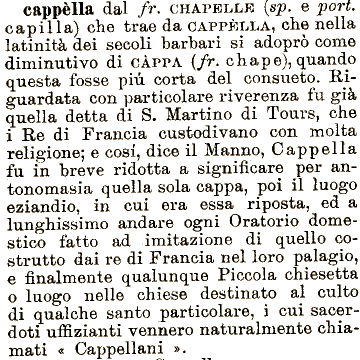 cappèlla dal fr. CHAPELLE (sp. e port.
capilla) che trae da CAPPÈLLA, che nella
latinità dei secoli barbari si adoprò come
diminutivo di CÀPPA (fr. chape), quando
questa fosse più corta del consueto. Ri-
guardata con particolare riverenza fu già
quella detta di S. Martino di Tours, che
i Re di Francia custodivano con molta
religione; e cosí, dice il Manno, Cappella
fu in breve ridotta a significare per an-
tonomasia quella sola cappa, poi il luogo
eziandio, in cui era essa riposta, ed a
lunghissimo andare ogni Oratorio dome-
stico fatto ad imitazione di quello co-
strutto dai re di Francia nel loro palagio,
e finalmente qualunque Piccola chiesetta
o luogo nelle chiese destinato al culto
di qualche santo particolare, i cui sacer-
doti uffizianti vennero naturalmente chia-
mati « Cappellani ».